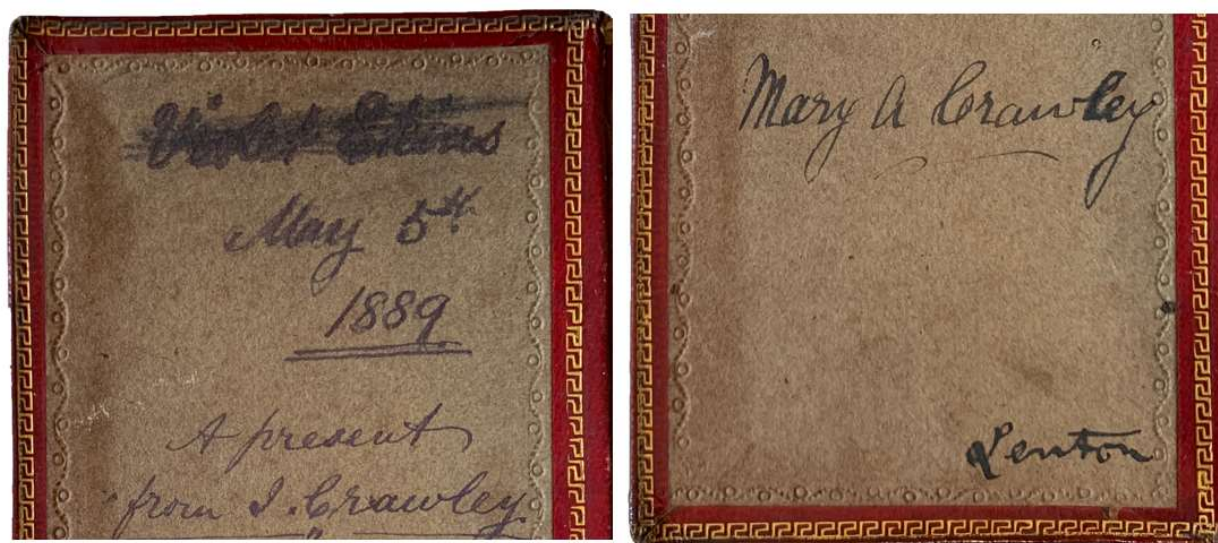 May 5th
1889
A present
from I. Crawley
Mary A Crawley
Lenton